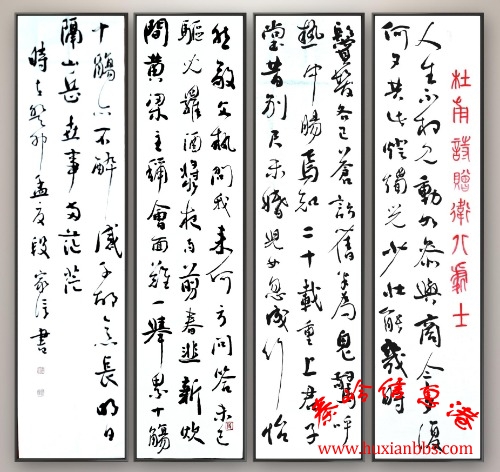 杜甫詩贈衛八處士
人生不相見動如參與商今夕復
何夕共此燈燭光少壯能幾時
鬢髮各已蒼訪舊半為鬼驚呼
熱中腸焉知二十載重上君子
堂昔別君未婚兒女忽成行怡
然敬父執問我來何方問答未已
驅兒羅酒漿夜雨剪春韭新炊
間黃粱主稱會面難一舉累十觴
十觴亦不醉感子故意長明日
隔山岳世事兩茫茫
時在癸卯孟夏段家信書
www.huxianbbs.com